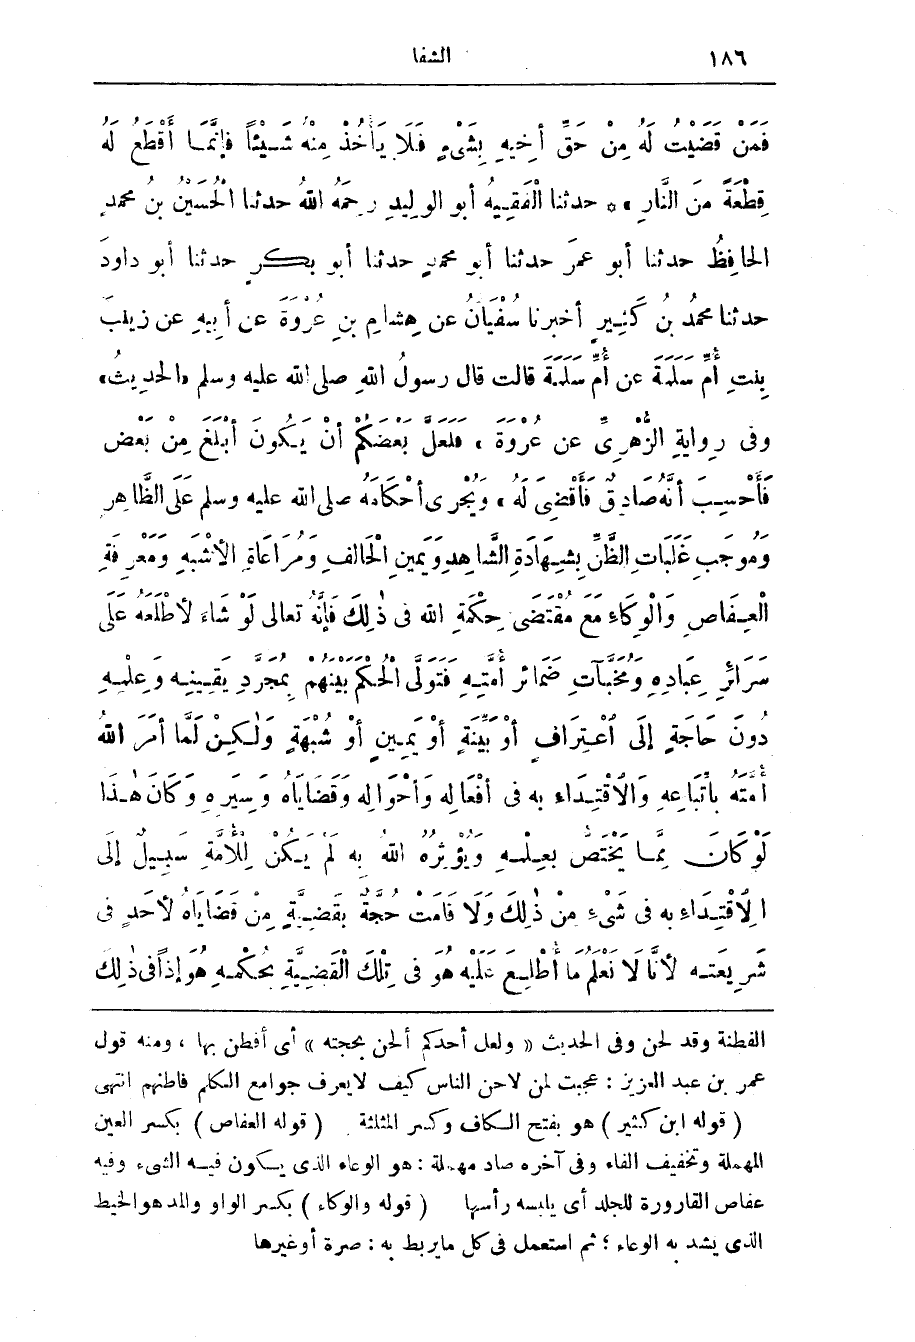 ١٨٦ الشفا
فَمَنْ قَضَيْتُ لَهُ مِنْ حَقِّ أَخِيهِ بِشَىْءٍ فَلَا يَأْخُذْ مِنْهُ شَيْئاً فإِنَّمَا أَقْطَعُ لَهُ
قِطْعَةً مِنَ النَّارِ » * حدثنا الْفَقِيهُ أبو الوليدِ رحِمَهُ اللهُ حدثنا الْحُسَيْنُ بن محمدٍ
الحافِظُ حدثنا أبو عمَرَ حدثنا أبو محمدٍ حدثنا أبو بكرٍ حدثنا أبو داودَ
حدثنا محمدُ بنُ كَثِيرٍ أخبرنا سُفْيَانُ عن هِشامِ بنِ عُرْوَةَ عن أبِيهِ عن زينبَ
بِنتِ أُمِّ سَلَمَةَ عن أُمِّ سَلَمَةَ قالت قال رسولُ اللهِ صلى الله عليه وسلم «الحديثَ»
وفى رِوايةِ الزُّهْرِىِّ عن عُرْوَةَ « فَلَعَلَّ بَعْضَكُمْ أنْ يَكُونَ أبْلَغَ مِنْ بَعْضٍ
فَأَحْسِبَ أنَّهُ صَادِقٌ فَأَقْضِىَ لَهُ » وَيُجْرِى أحْكامَهُ صلى الله عليه وسلم عَلَى الظَّاهِرِ
وَمُوجَبِ غَلَبَاتِ الظَّنِّ بِشَهَادَةِ الشَّاهِدِ وَيَمِينِ الْحَالِفِ وَمُرَاعَاةِ الأشْبَهِ وَمَعْرِفَةِ
الْعِفَاصِ وَالْوِكَاءِ مَعَ مُقْتَضَى حِكْمَةِ الله فى ذٰلِكَ فَإِنَّهُ تعالى لَوْ شَاءَ لأطْلَعَهُ عَلَى
سَرَائِرِ عِبَادِهِ وَمُخَبَّآتِ ضَمَائرِ أُمَّتِهِ فَتَوَلَّى الْحُكْمَ بَيْنَهُمْ بِمُجَرَّدِ يَقِينِهِ وَعِلْمِهِ
دُونَ حَاجَةٍ إلَى اعْتِرَافٍ أوْ بَيِّنَةٍ أوْ يَمِينٍ أوْ شُبْهَةٍ وَلٰكِنْ لَمَّا أمَرَ اللهُ
أُمَّتَهُ بِاتِّبَاعِهِ وَالاقْتِدَاءِ به فى أفْعَالِهِ وَأحْوَالِهِ وَقَضَايَاهُ وَسِيَرِهِ وَكَانَ هٰذَا
لَوْ كَانَ مِمَّا يَخْتَصُّ بِعِلْمِهِ وَيُؤْثِرُهُ اللهُ بِهِ لَمْ يَكُنْ لِلْأُمَّةِ سَبِيلٌ إلَى
الِاقْتِدَاءِ بِهِ فى شَىْءٍ مِنْ ذٰلِكَ وَلَا قَامَتْ حُجَّةٌ بِقَضِيَّةٍ مِنْ قَضَايَاهُ لأحَدٍ فى
شَرِيعَتِهِ لأنَّا لَا نَعْلَمُ مَا أُطْلِعَ عَلَيْهِ هُوَ فى تِلْكَ الْقَضِيَّةِ بِحُكْمِهِ هُوَ إذاً فى ذٰلِكَ
الفطنة وقد لحن وفى الحديث « ولعل أحدكم ألحن بحجته » أى أفطن بها ، ومنه قول
عمر بن عبد العزيز : عجبت لمن لاحن الناس كيف لا يعرف جوامع الكلم فاطنهم انتهى
( قوله ابن كثير ) هو بفتح الكاف وكسر المثلثة ( قوله العفاص ) بكسر العين
المهملة وتخفيف الفاء وفى آخره صاد مهملة : هو الوعاء الذى يكون فيه الشىء وفيه
عفاص القارورة للجلد أى يلبسه رأسها ( قوله والوكاء ) بكسر الواو والمد هو الخيط
الذى يشد به الوعاء ؛ ثم استعمل فى كل ما يربط به : صرة أو غيرها